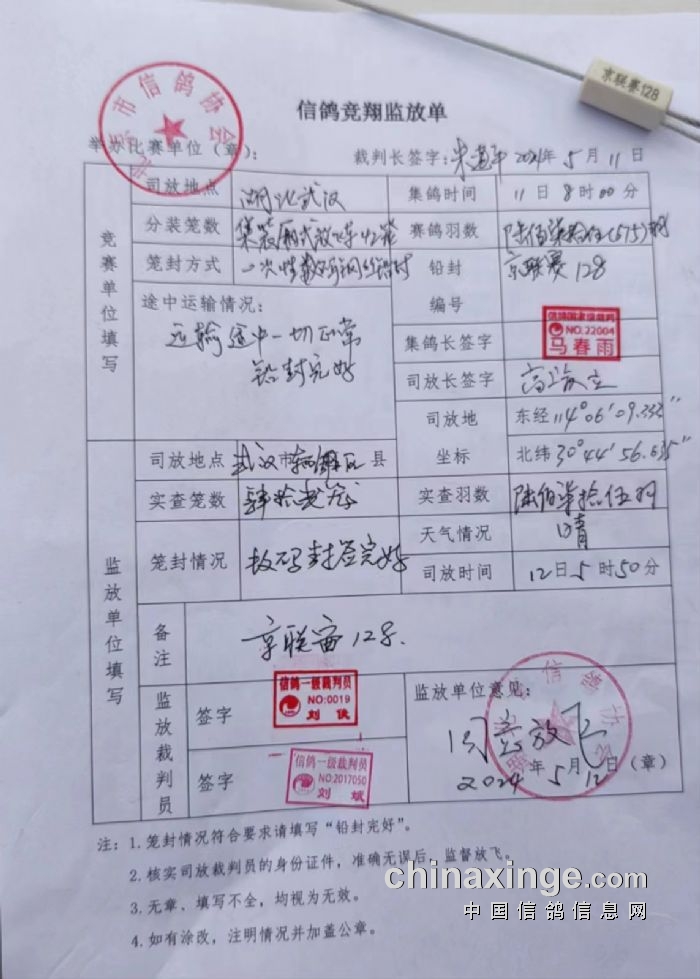 京联赛128
信鸽竞翔监放单
市信鸽协会
举办比赛单位（章）： 裁判长签字： 2024年5月11日
竞赛单位填写
司放地点 湖北武汉 集鸽时间 11日8时00分
分装笼数 集装厢式放飞笼 赛鸽羽数 (575)羽
笼封方式 一次性数码钢丝铅封 铅封编号 京联赛128
途中运输情况：
运输途中一切正常
铅封完好
集鸽长签字 信鸽国家级裁判 NO:22004 马春雨
司放长签字
司放地坐标 东经114°06'09.332"
北纬30°44'56.635"
监放单位填写
司放地点 武汉市 区县
实查笼数 实查羽数 陆佰柒拾伍羽
笼封情况 数码封签完好 天气情况 晴
司放时间 12日5时50分
备注 京联赛128.
监放裁判员
签字 信鸽一级裁判员 NO:0019 刘侠
签字 信鸽一级裁判员 NO:2017050 刘斌
监放单位意见：
信鸽协会
同意放飞
2024年5月12日（章）
注：1.笼封情况符合要求请填写“铅封完好”。
2.核实司放裁判员的身份证件，准确无误后，监督放飞。
3.无章、填写不全，均视为无效。
4.如有涂改，注明情况并加盖公章。
chinaxinge.com
中国信鸽信息网